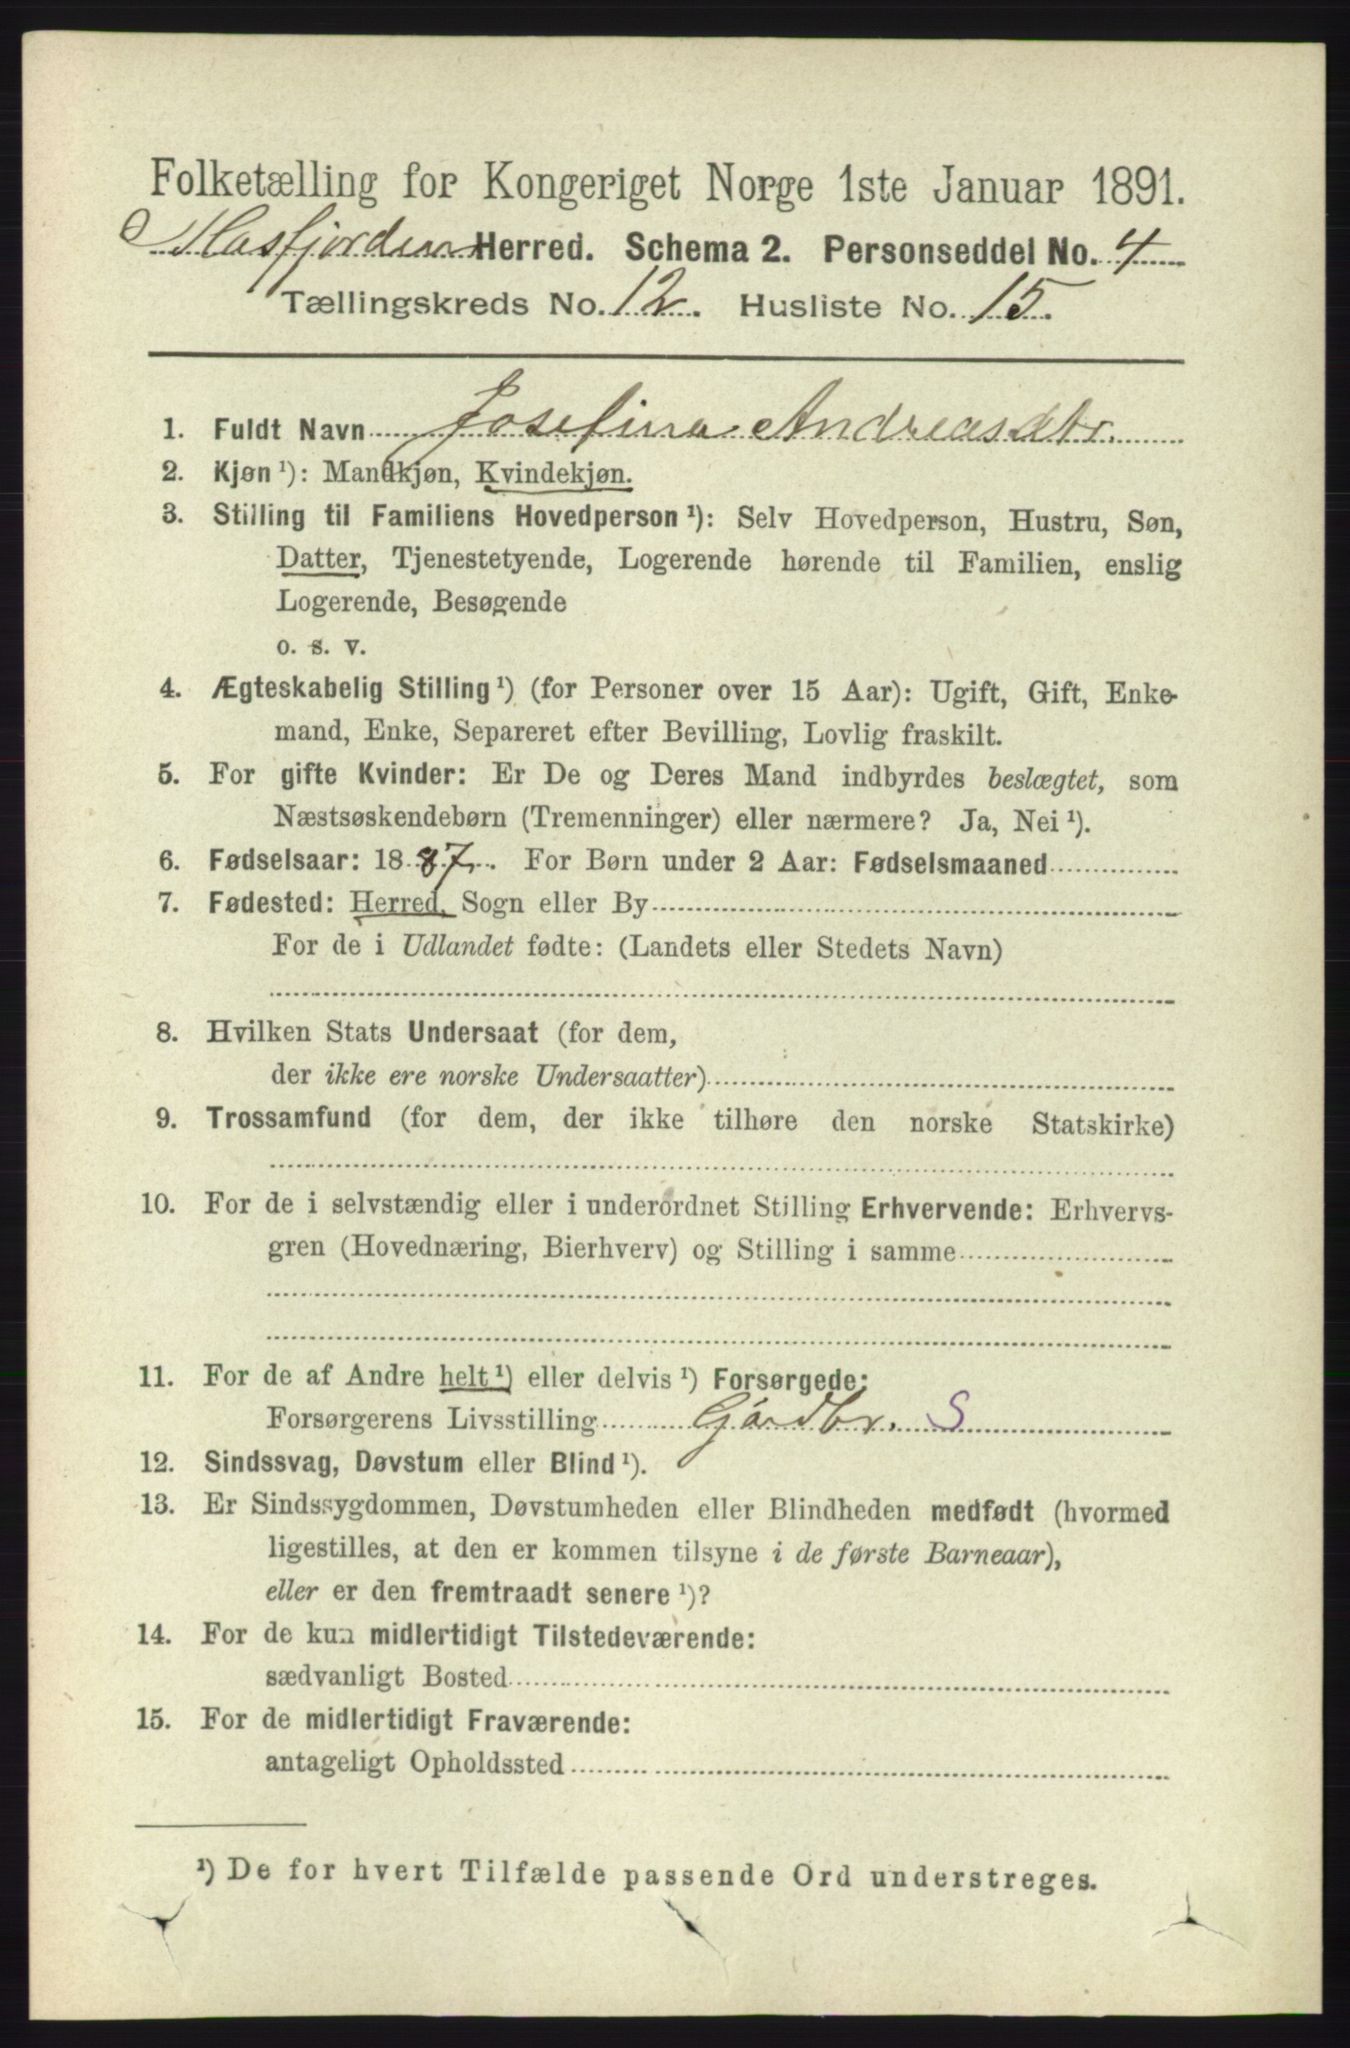 Folketælling for Kongeriget Norge 1ste Januar 1891.
Masfjorden Herred. Schema 2. Personseddel No. 4
Tællingskreds No. 12. Husliste No. 15.
1. Fuldt Navn Josefina Andreasdtr.
2. Kjøn ¹): Mandkjøn, Kvindekjøn.
3. Stilling til Familiens Hovedperson ¹): Selv Hovedperson, Hustru, Søn,
Datter, Tjenestetyende, Logerende hørende til Familien, enslig
Logerende, Besøgende
o. s. v.
4. Ægteskabelig Stilling ¹) (for Personer over 15 Aar): Ugift, Gift, Enke-
mand, Enke, Separeret efter Bevilling, Lovlig fraskilt.
5. For gifte Kvinder: Er De og Deres Mand indbyrdes beslægtet, som
Næstsøskendebørn (Tremenninger) eller nærmere? Ja, Nei ¹).
6. Fødselsaar: 1887. For Børn under 2 Aar: Fødselsmaaned
7. Fødested: Herred, Sogn eller By
For de i Udlandet fødte: (Landets eller Stedets Navn)
8. Hvilken Stats Undersaat (for dem,
der ikke ere norske Undersaatter)
9. Trossamfund (for dem, der ikke tilhøre den norske Statskirke)
10. For de i selvstændig eller i underordnet Stilling Erhvervende: Erhvervs-
gren (Hovednæring, Bierhverv) og Stilling i samme
11. For de af Andre helt ¹) eller delvis ¹) Forsørgede:
Forsørgerens Livsstilling Gårdbr. S
12. Sindssvag, Døvstum eller Blind ¹).
13. Er Sindssygdommen, Døvstumheden eller Blindheden medfødt (hvormed
ligestilles, at den er kommen tilsyne i de første Barneaar),
eller er den fremtraadt senere ¹)?
14. For de kun midlertidigt Tilstedeværende:
sædvanligt Bosted
15. For de midlertidigt Fraværende:
antageligt Opholdssted
¹) De for hvert Tilfælde passende Ord understreges.